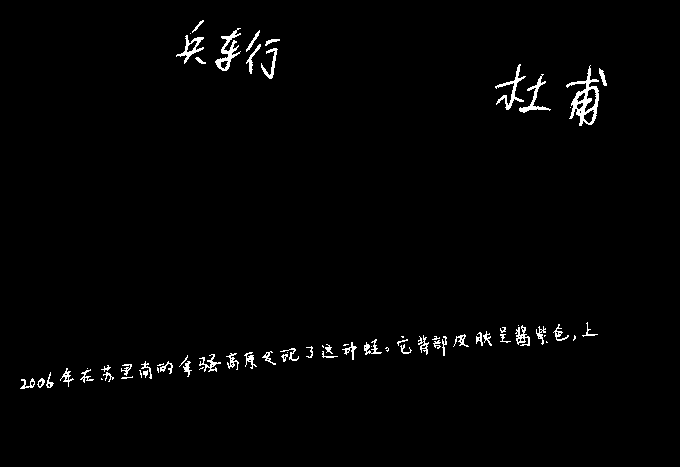 兵车行
杜甫
2006年在苏里南的拿骚高原发现了这种蛙。它背部皮肤呈酱紫色,上